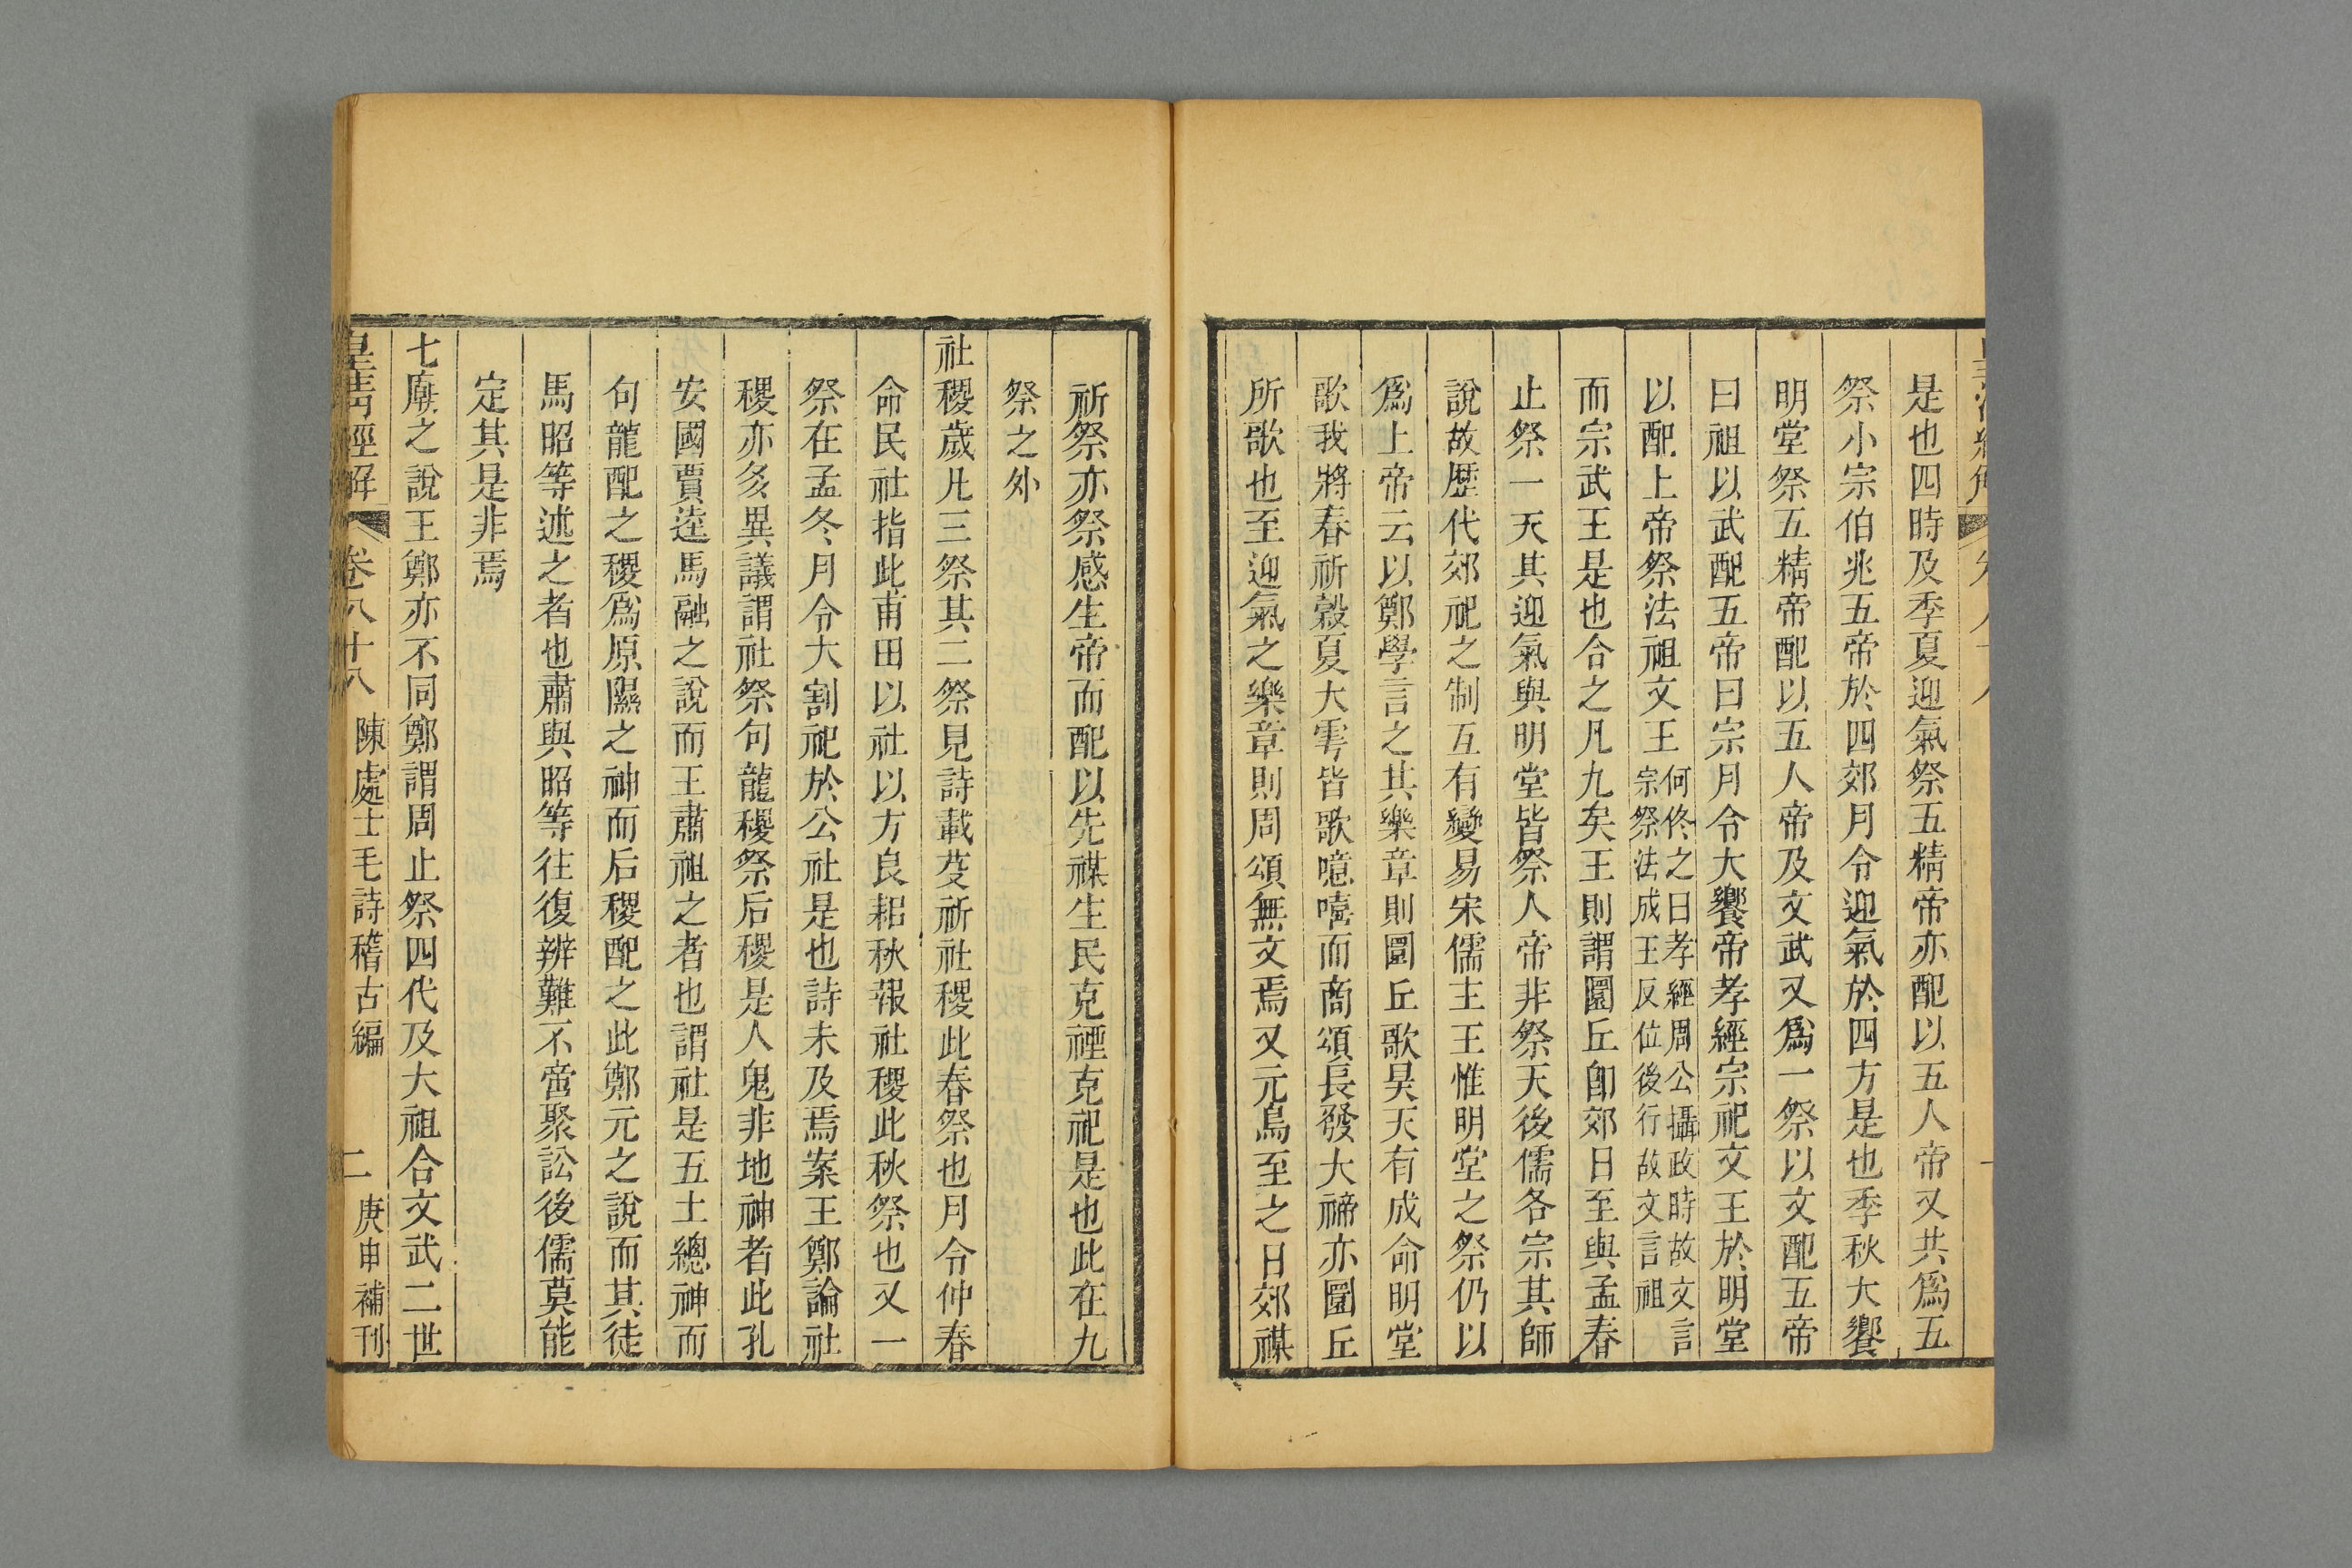 是也四時及季夏迎氣祭五精帝亦配以五人帝又共爲五
祭小宗伯兆五帝於四郊月令迎氣於四方是也季秋大饗
明堂祭五精帝配以五人帝及文武又爲一祭以文配五帝
曰祖以武配五帝曰宗月令大饗帝孝經宗祀文王於明堂
以配上帝祭法祖文王何佟之曰孝經周公攝政時故文言
宗祭法成王反位後行故文言祖
而宗武王是也合之凡九矣王則謂圜丘卽郊日至與孟春
止祭一天其迎氣與明堂皆祭人帝非祭天後儒各宗其師
說故歴代郊祀之制互有變易宋儒主王惟明堂之祭仍以
爲上帝云以鄭學言之其樂章則圜丘歌昊天有成命明堂
歌我將春祈穀夏大雩皆歌噫嘻而商頌長發大禘亦圜丘
所歌也至迎氣之樂章則周頌無文焉又元鳥至之日郊禖
祈祭亦祭感生帝而配以先禖生民克禋克祀是也此在九
祭之外
社稷歲凡三祭其二祭見詩載芟祈社稷此春祭也月令仲春
命民社指此甫田以社以方良耜秋報社稷此秋祭也又一
祭在孟冬月令大割祀於公社是也詩未及焉案王鄭論社
稷亦多異議謂社祭句龍稷祭后稷是人鬼非地神者此孔
安國賈逵馬融之說而王肅祖之者也謂社是五土總神而
句龍配之稷爲原隰之神而后稷配之此鄭元之說而其徒
馬昭等述之者也肅與昭等往復辨難不啻聚訟後儒莫能
定其是非焉
七廟之說王鄭亦不同鄭謂周止祭四代及大祖合文武二世
皇清經解 卷八十八 陳處士毛詩稽古編 二 庚申補刊